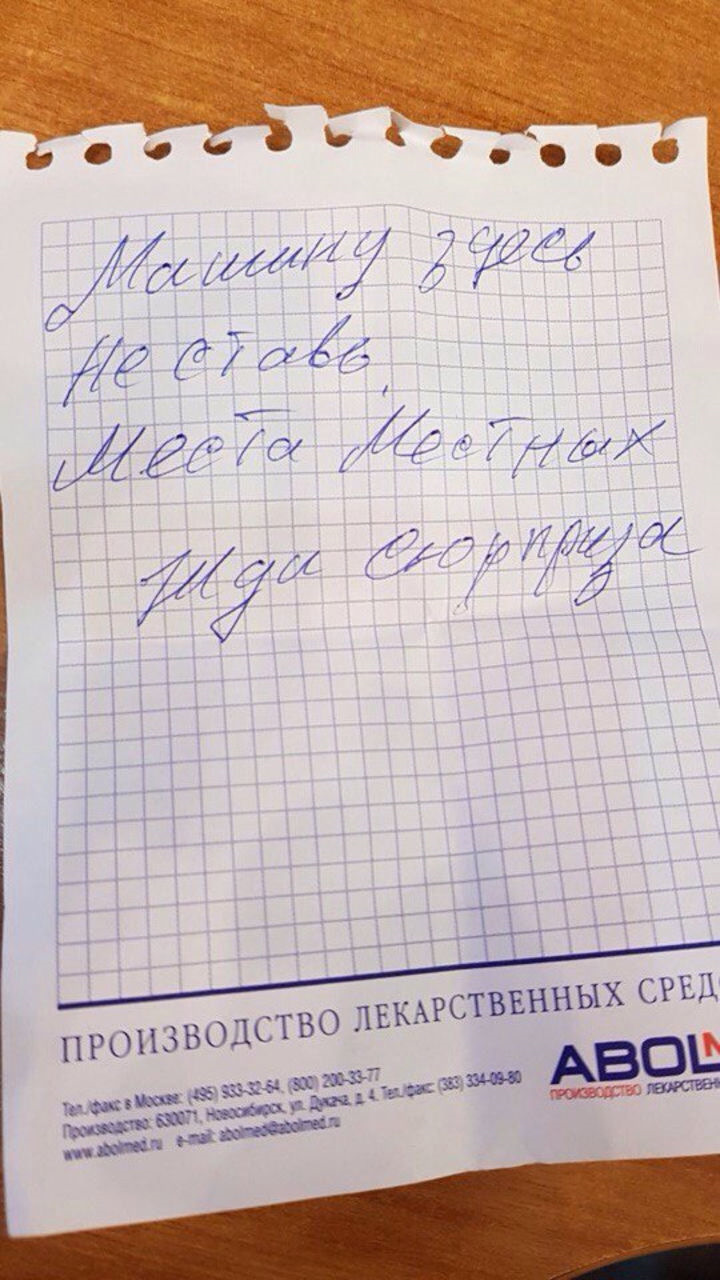 Машину здесь
не ставь,
Места Местных
Жди сюрприза
ПРОИЗВОДСТВО ЛЕКАРСТВЕННЫХ СРЕДС
Тел./факс в Москве: (495) 933-32-64, (800) 200-33-77
Производство: 630071, Новосибирск, ул. Дукача, д. 4. Тел./факс: (383) 334-09-80
www.abolmed.ru e-mail: abolmed@abolmed.ru
ABOLM
ПРОИЗВОДСТВО ЛЕКАРСТВЕНН